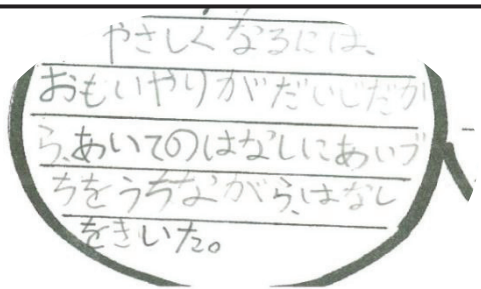 やさしくなるには、
おもいやりがだいじだか
ら、あいてのはなしにあいづ
ちをうちながら、はなし
をきいた。